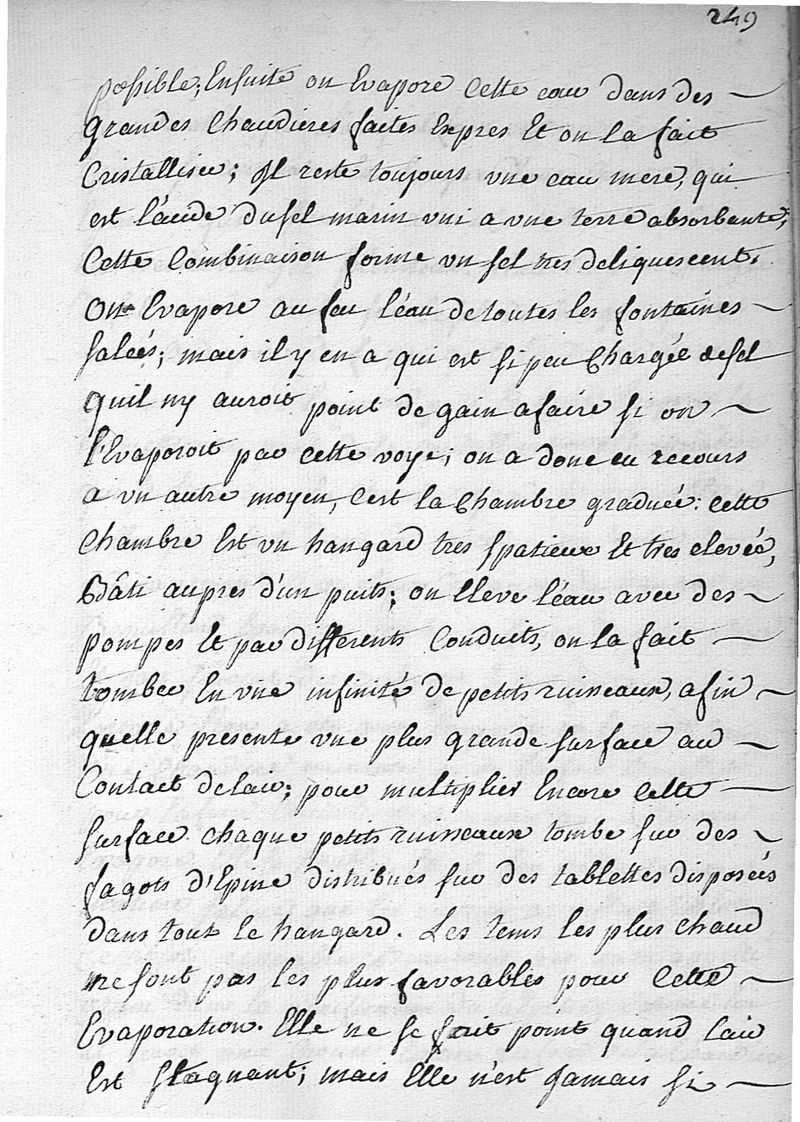 249
possible; Ensuite on Evapore Cette eau dans des
grandes Chaudieres faites Expres Et on la fait
Cristalliser; Il reste toujours une eau mere, qui
est l'acide du sel marin uni a une terre absorbante,
Cette Combinaison forme un sel tres deliquescent.
On Evapore au feu l'eau de toutes les fontaines
salées; mais il y en a qui est si peu Chargée de sel
quil ny auroit point de gain a faire si on
l'Evaporoit par cette voye; on a donc eu recours
a un autre moyen, C'est la Chambre graduée: cette
Chambre Est un hangard tres spatieux Et tres elevée,
Bâti aupres d'un puits; on Eleve l'eau avec des
pompes Et par differents Conduits, on la fait
tomber En une infinité de petits ruisseaux, afin
quelle presente une plus grande surface au
Contact de lair; pour multiplier Encore Cette
surface chaque petits ruisseaux tombe sur des
fagots d'Epine distribués sur des tablettes disposées
dans tout le hangard. Les tems les plus chaud
ne sont pas les plus favorables pour Cette
Evaporation. Elle ne se fait point quand l'air
Est stagnant; mais Elle n'est Jamais si